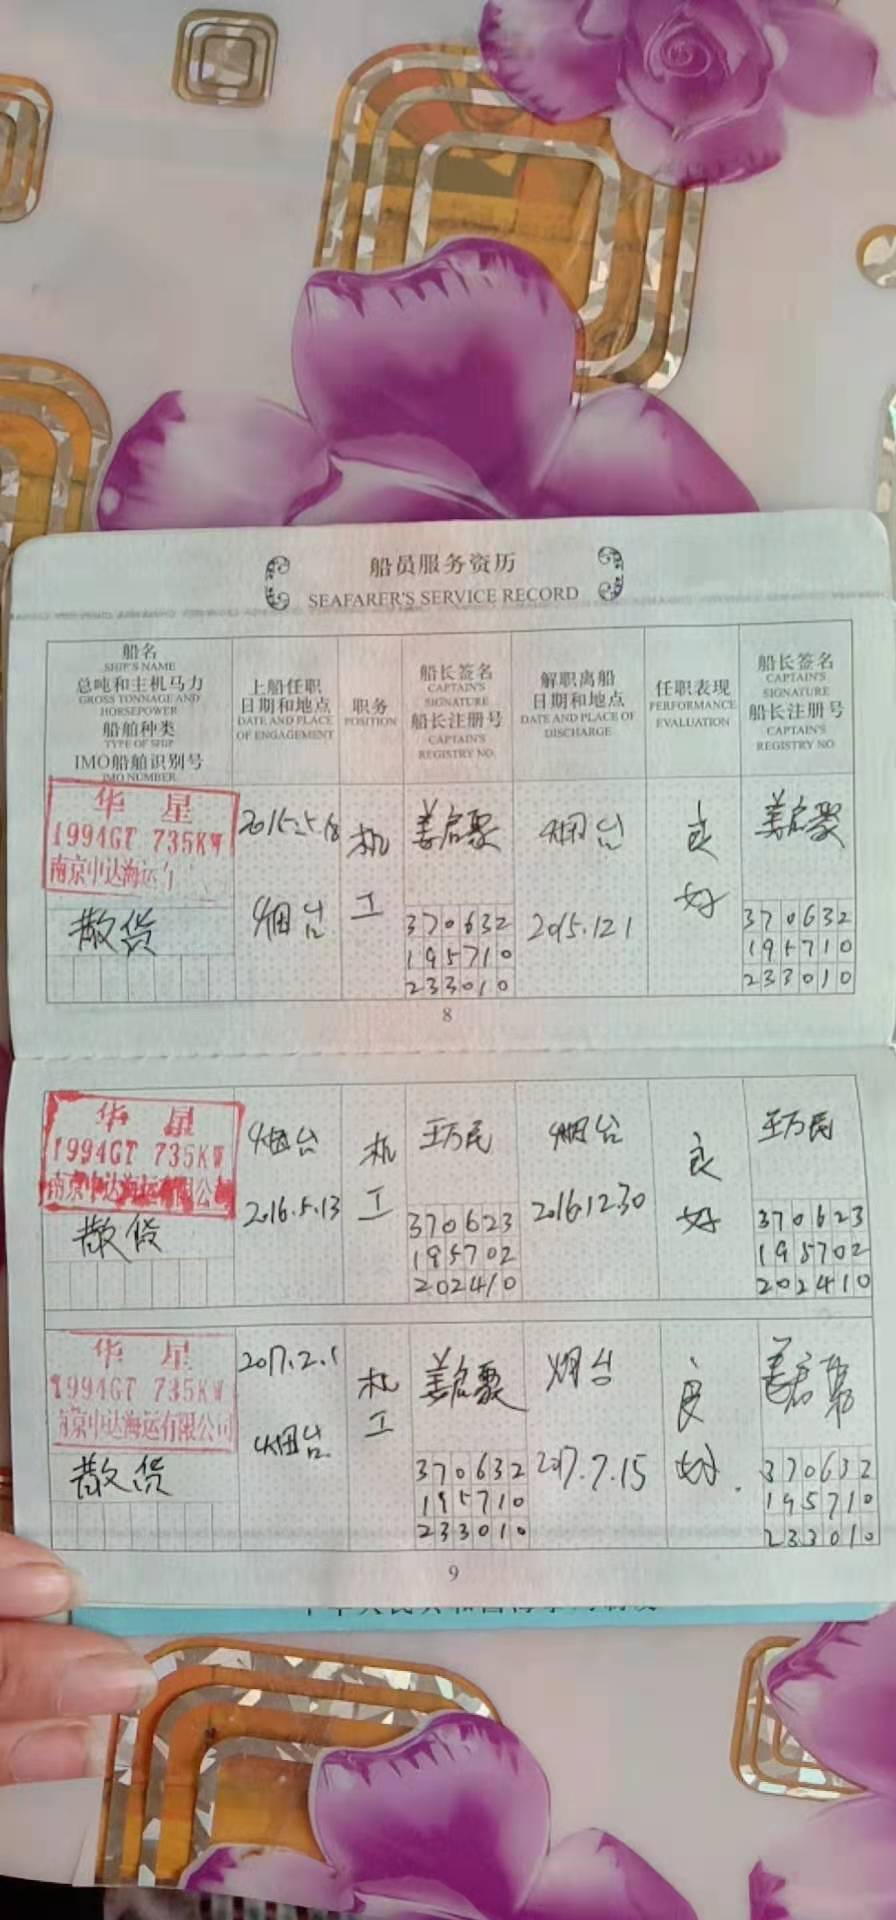 船员服务资历
SEAFARER'S SERVICE RECORD
船名
SHIP'S NAME
总吨和主机马力
GROSS TONNAGE AND
HORSEPOWER
船舶种类
TYPE OF SHIP
IMO船舶识别号
IMO NUMBER
上船任职
日期和地点
DATE AND PLACE
OF ENGAGEMENT
职务
POSITION
船长签名
CAPTAIN'S
SIGNATURE
船长注册号
CAPTAIN'S
REGISTRY NO.
解职离船
日期和地点
DATE AND PLACE OF
DISCHARGE
任职表现
PERFORMANCE
EVALUATION
船长签名
CAPTAIN'S
SIGNATURE
船长注册号
CAPTAIN'S
REGISTRY NO.
华 星
1994GT 735KW
南京中达海运
散货
烟台
机
工
姜启聚
370632
195710
233010
烟台
2015.12.1
良
好
姜启聚
370632
195710
233010
8
华 星
1994GT 735KW
南京中达海运有限公
散货
烟台
2016.5.13
机
工
王万民
370623
195702
202410
烟台
2016.12.30
良
好
王万民
370623
195702
202410
华 星
1994GT 735KW
南京中达海运有限公司
散货
2017.2.1
烟台
机
工
姜启聚
370632
195710
233010
烟台
2017.7.15
良
好.
370632
195710
233010
9